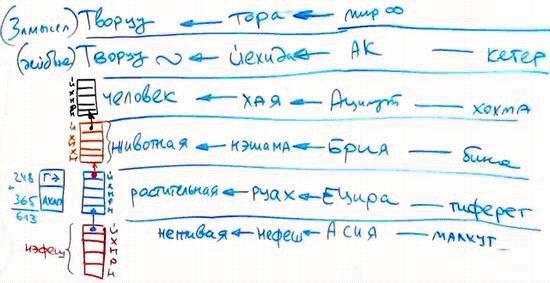 (Замысел) Творцу ← Тора ← мир ∞
Творцу ~ ← йехида ← АК — кетер
человек ← хая ← Ацилут — хохма
животная ← нэшама ← Брия — бина
248 ГЭ
растительная ← руах ← Ецира — тиферет
+
365 АХАП
613
неживая ← нефеш ← Асия — малхут
нэфеш
Й
Х
Н
Р
Н